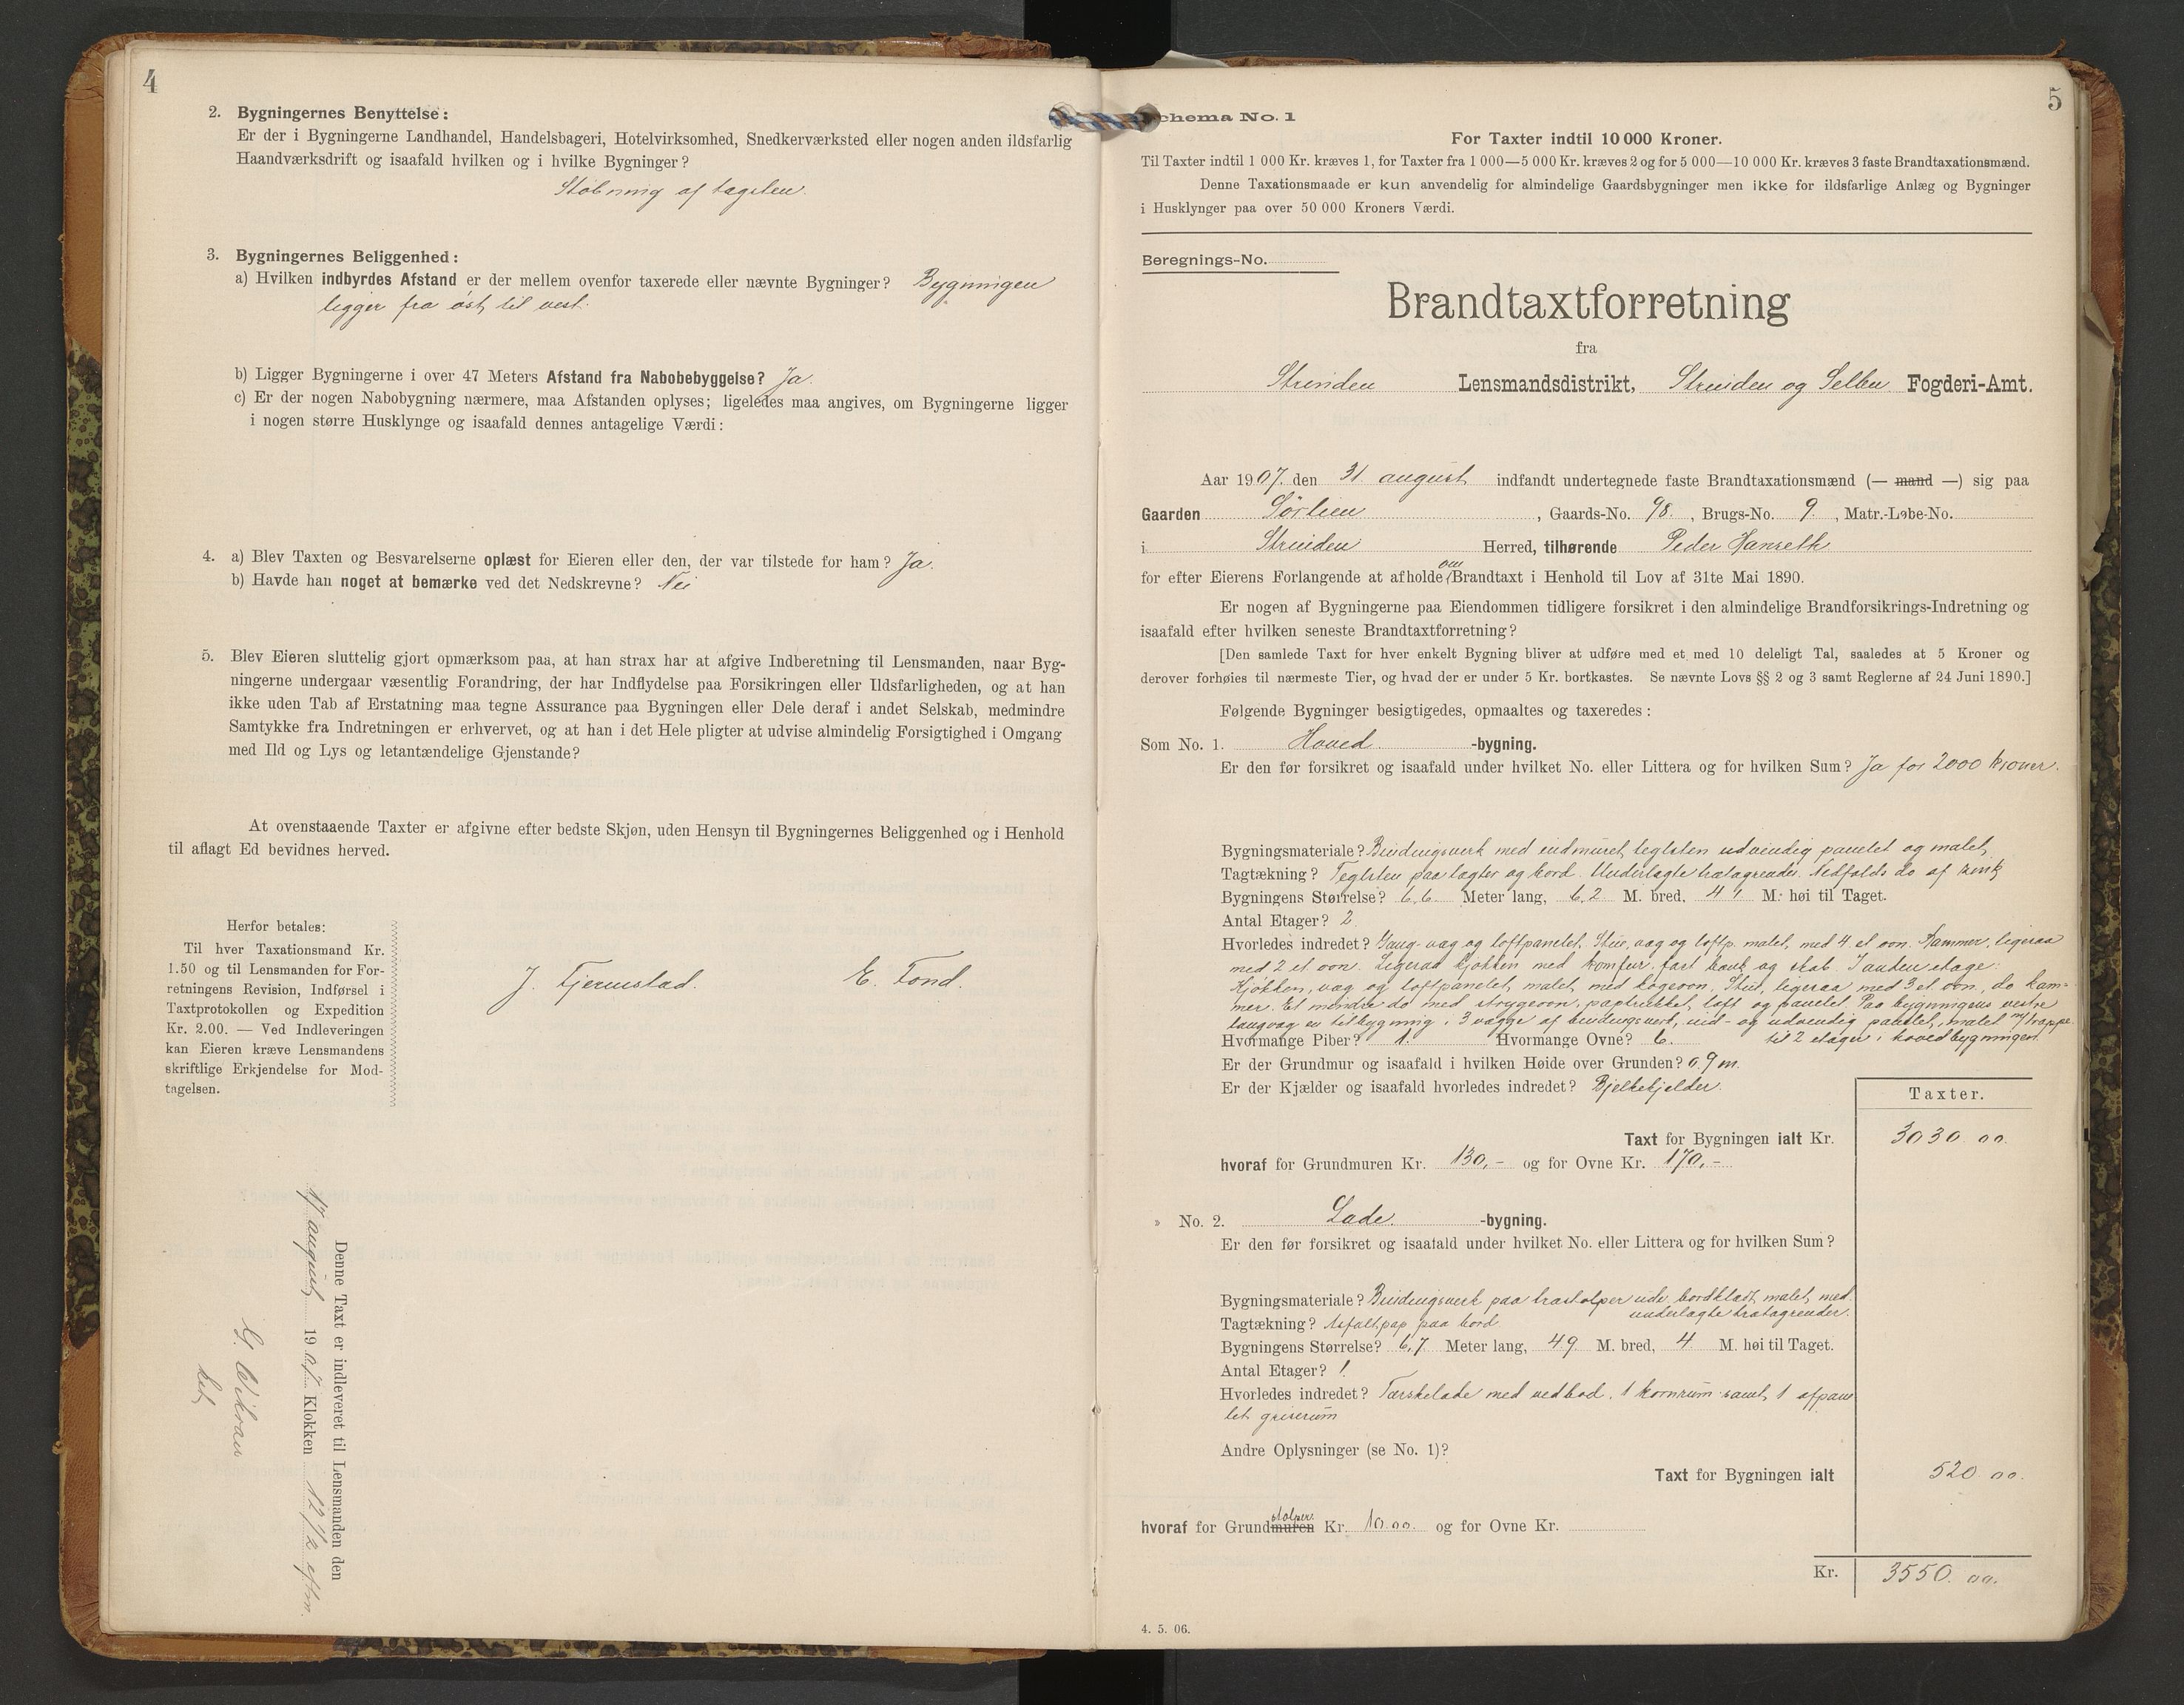 4
2. Bygningernes Benyttelse:
Er der i Bygningerne Landhandel, Handelsbageri, Hotelvirksomhed, Snedkerværksted eller nogen anden ildsfarlig
Haandværksdrift og isaafald hvilken og i hvilke Bygninger?
Støbning af tagsten.
3. Bygningernes Beliggenhed:
a) Hvilken indbyrdes Afstand er der mellem ovenfor taxerede eller nævnte Bygninger? Bygningen
ligger fra øst til vest.
b) Ligger Bygningerne i over 47 Meters Afstand fra Nabobebyggelse? Ja.
c) Er der nogen Nabobygning nærmere, maa Afstanden oplyses; ligeledes maa angives, om Bygningerne ligger
i nogen større Husklynge og isaafald dennes antagelige Værdi:
4. a) Blev Taxten og Besvarelserne oplæst for Eieren eller den, der var tilstede for ham? Ja.
b) Havde han noget at bemærke ved det Nedskrevne? Nei
5. Blev Eieren sluttelig gjort opmærksom paa, at han strax har at afgive Indberetning til Lensmanden, naar Byg-
ningerne undergaar væsentlig Forandring, der har Indflydelse paa Forsikringen eller Ildsfarligheden, og at han
ikke uden Tab af Erstatning maa tegne Assurance paa Bygningen eller Dele deraf i andet Selskab, medmindre
Samtykke fra Indretningen er erhvervet, og at han i det Hele pligter at udvise almindelig Forsigtighed i Omgang
med Ild og Lys og letantændelige Gjenstande?
At ovenstaaende Taxter er afgivne efter bedste Skjøn, uden Hensyn til Bygningernes Beliggenhed og i Henhold
til aflagt Ed bevidnes herved.
Herfor betales:
Til hver Taxationsmand Kr.
1.50 og til Lensmanden for For-
retningens Revision, Indførsel i
Taxtprotokollen og Expedition
Kr. 2.00. — Ved Indleveringen
kan Eieren kræve Lensmandens
skriftlige Erkjendelse for Mod-
tagelsen.
J. Fjermstad. E. Tond.
Denne Taxt er indleveret til Lensmanden den
17 august 1907 Klokken 12 1/2 eftm.
G. Wikran
kst
5
chema No. 1
For Taxter indtil 10 000 Kroner.
Til Taxter indtil 1 000 Kr. kræves 1, for Taxter fra 1 000—5 000 Kr. kræves 2 og for 5 000—10 000 Kr. kræves 3 faste Brandtaxationsmænd.
Denne Taxationsmaade er kun anvendelig for almindelige Gaardsbygninger men ikke for ildsfarlige Anlæg og Bygninger
i Husklynger paa over 50 000 Kroners Værdi.
Beregnings-No.
Brandtaxtforretning
fra
Strinden Lensmandsdistrikt, Strinden og Selbu Fogderi-Amt.
Aar 1907. den 31 august indfandt undertegnede faste Brandtaxationsmænd (— mand —) sig paa
Gaarden Sörlien, Gaards-No. 98., Brugs-No. 9., Matr.-Løbe-No.
i Strinden Herred, tilhørende Peder Hanseth
for efter Eierens Forlangende at afholde om Brandtaxt i Henhold til Lov af 31te Mai 1890.
Er nogen af Bygningerne paa Eiendommen tidligere forsikret i den almindelige Brandforsikrings-Indretning og
isaafald efter hvilken seneste Brandtaxtforretning?
[Den samlede Taxt for hver enkelt Bygning bliver at udføre med et med 10 deleligt Tal, saaledes at 5 Kroner og
derover forhøies til nærmeste Tier, og hvad der er under 5 Kr. bortkastes. Se nævnte Lovs §§ 2 og 3 samt Reglerne af 24 Juni 1890.]
Følgende Bygninger besigtigedes, opmaaltes og taxeredes:
Som No. 1. Hoved -bygning.
Er den før forsikret og isaafald under hvilket No. eller Littera og for hvilken Sum? Ja for 2000 kroner.
Bygningsmateriale? Bindingsverk med indmuret teglsten udvendig panelet og malet,
Tagtækning? Teglsten paa lægter og bord. Underlagte trætagrender. Nedfalds do af zink
Bygningens Størrelse? 6,6 Meter lang, 6,2 M. bred, 4 1 M. høi til Taget.
Antal Etager? 2
Hvorledes indredet? Gang-væg og loftpanelet, Stue, væg og loftp. malet, med 4 et ovn. Kammer, ligesaa
med 2 et ovn. Ligesaa kjøkken med komfur, fast bænk og skab. I anden etage:
Kjøkken, væg og loftpanelet, malet, med kogeovn, Stue, ligesaa med 3 et ovn, do kam-
mer. Et mindre do med strygeovn, paptrukket, loft og panelet. Paa bygningens vestre
langvæg en tilbygning, 3 vægge af bindingsverk, ind- og udvendig panelet, malet m/ trappe
til 2 etage i hovedbygningen.
Hvormange Piber? 1. Hvormange Ovne? 6.
Er der Grundmur og isaafald i hvilken Høide over Grunden? 0,9 m.
Er der Kjælder og isaafald hvorledes indredet? Bjelkekjelder.
Taxter.
Taxt for Bygningen ialt Kr. 3030 00.
hvoraf for Grundmuren Kr. 130,- og for Ovne Kr. 170,-
» No. 2. Lade. -bygning.
Er den før forsikret og isaafald under hvilket No. eller Littera og for hvilken Sum?
Bygningsmateriale? Bindingsverk paa træstolper ude bordklædt, malet, med
underlagte trætagrender.
Tagtækning? Asfaltpap paa bord.
Bygningens Størrelse? 6,7 Meter lang, 4 9 M. bred, 4 M. høi til Taget.
Antal Etager? 1
Hvorledes indredet? Tærskelade med vedbod, 1 kornrum samt 1 afpane
let griserum
Andre Oplysninger (se No. 1)?
Taxt for Bygningen ialt 520. 00.
hvoraf for Grundmuren stolper Kr. 10.00. og for Ovne Kr.
Kr. 3550. 00.
4. 5. 06.